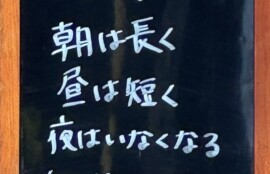 朝は長く
昼は短く
夜はいなくなる